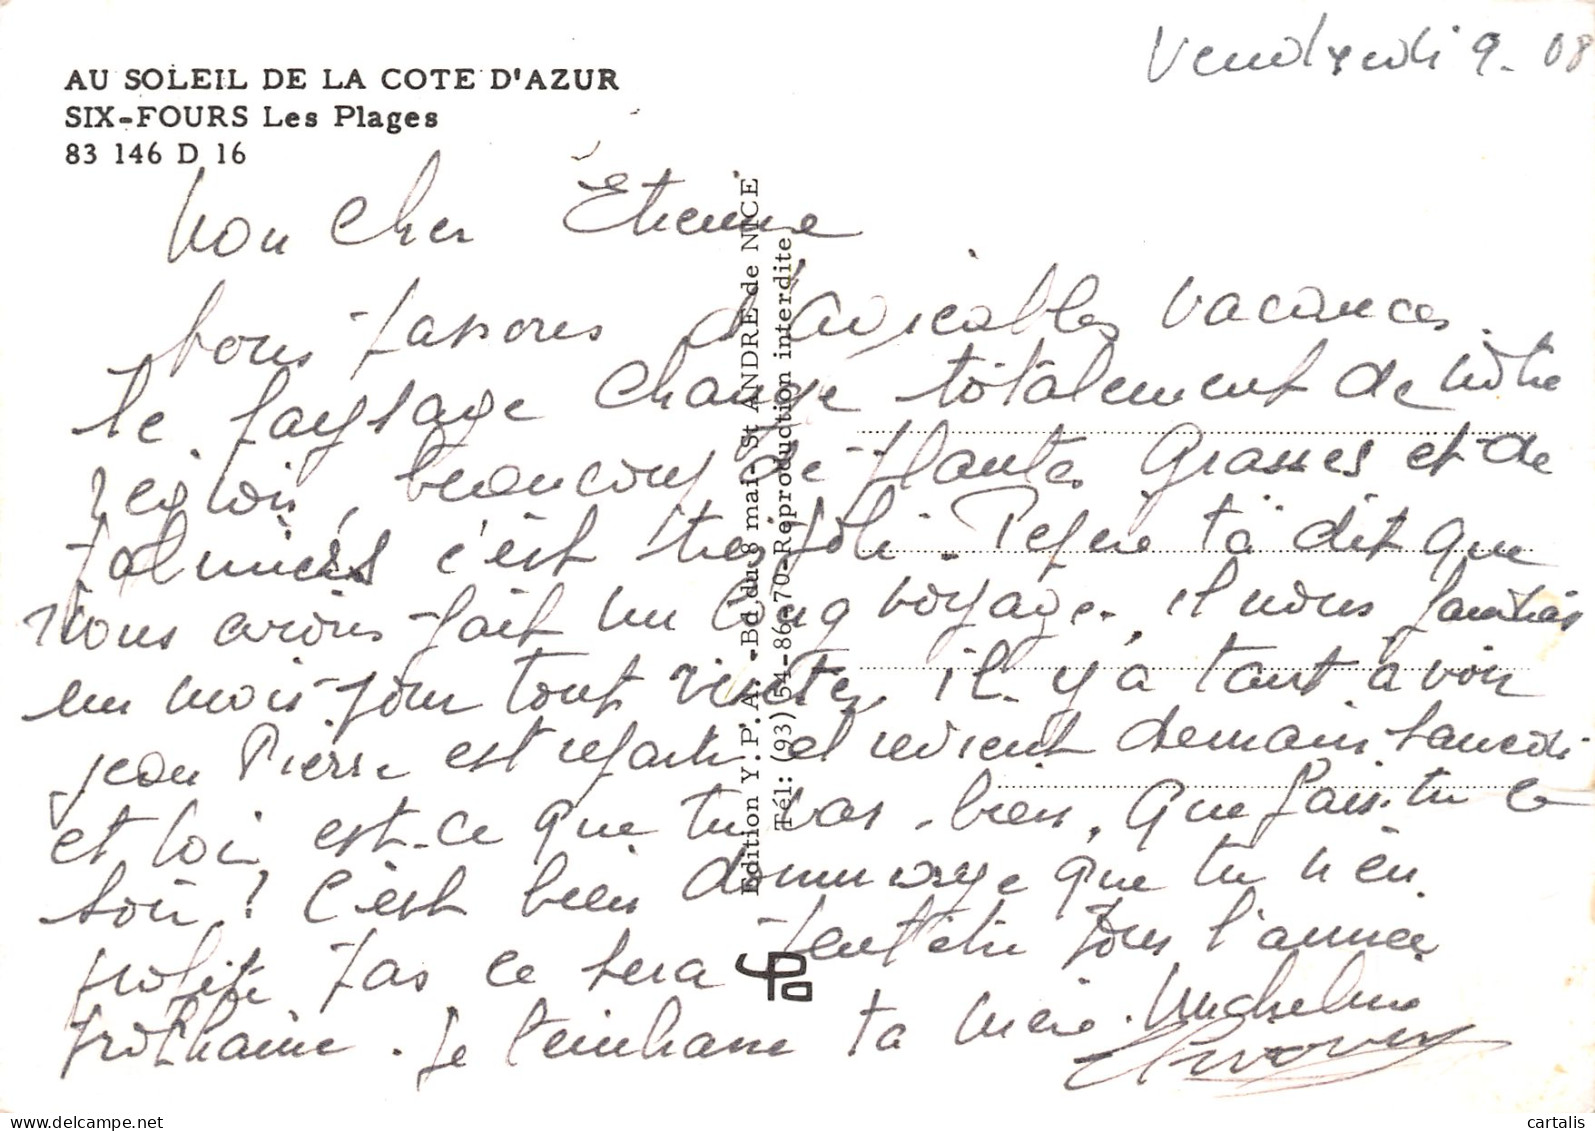 Vendredi 9. 08
AU SOLEIL DE LA COTE D'AZUR
SIX-FOURS Les Plages
83 146 D 16
Mon cher Etienne
nous passons d'agréables vacances.
le paysage change totalement de notre
région, beaucoup de plantes grasses et de
palmiers c'est très joli. Pépé t'a dit que
nous avions fait un long voyage. il nous faudrais
un mois pour tout visiter, il y a tant à voir
jean Pierre est reparti et revient demain samedi
et toi est-ce que tu vas bien. Que fais-tu le
soir ? C'est bien dommage que tu n'en
profite pas ce sera peut etre pour l'année
prochaine. je t'embrasse ta Mère. Micheline
Edition Y. P. A. - Bd du 8 mai - St ANDRE de NICE
Tél: (93) 54-86-70 - Reproduction interdite
ypa
cartalis
delcampe.net